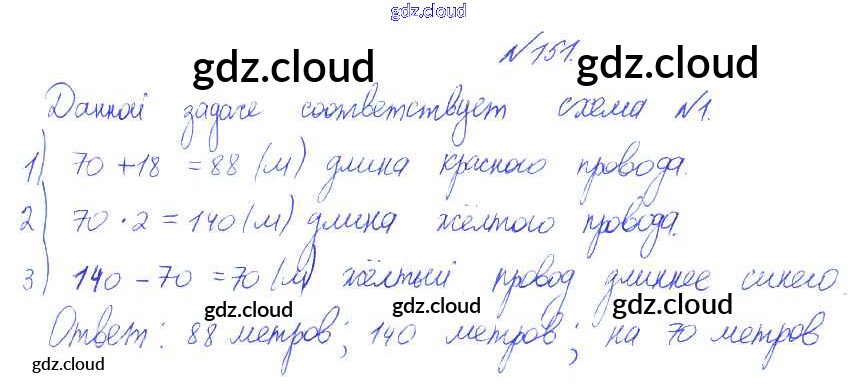 gdz.cloud
№151.
gdz.cloud gdz.cloud
Данной задаче соответствует схема №1.
1) 70 + 18 = 88 (м) длина красного провода.
2) 70 · 2 = 140 (м) длина жёлтого провода.
3) 140 - 70 = 70 (м) жёлтый провод длиннее синего.
gdz.cloud gdz.cloud gdz.cloud
Ответ: 88 метров; 140 метров; на 70 метров
gdz.cloud